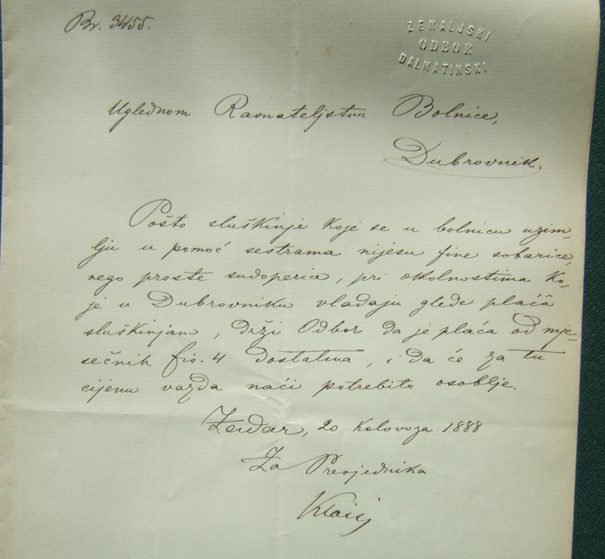 Br. 3455.
ZEMALJSKI
ODBOR
DALMATINSKI
Uglednom Ravnateljstvu Bolnice,
Dubrovnik.
Pošto sluškinje koje se u bolnicu uzim-
lju u pomoć sestrama nijesu fine sobarice,
nego proste sudoperice, pri okolnostima ko-
je u Dubrovniku vladaju glede plaćâ
sluškinjan, drži Odbor da je plaća od mje-
sečnih fio. 4 dostatna, i da će za tu
cijenu vazda naći potrebito osoblje.
Zadar, 20 Kolovoza 1888
Za Presjednika